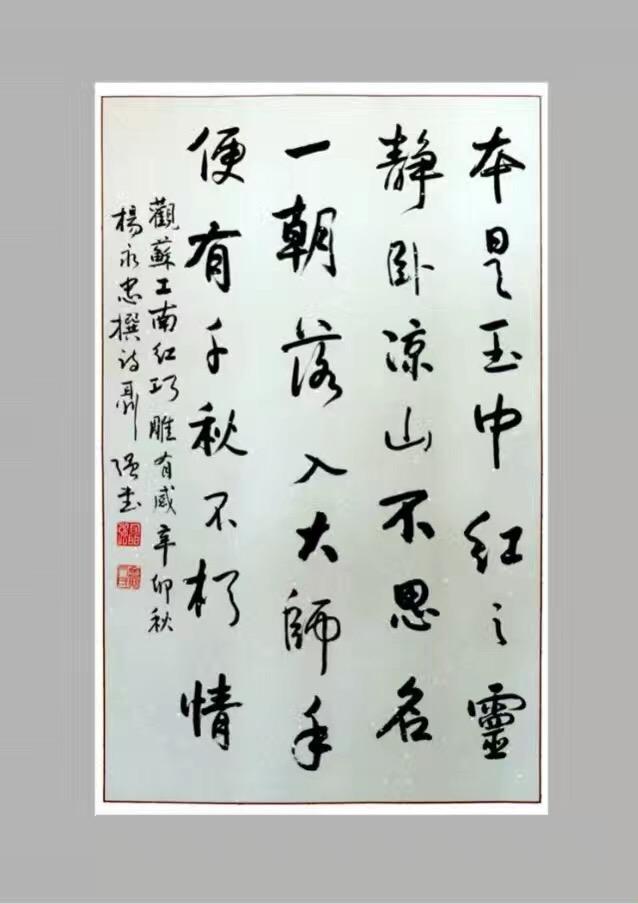 本是玉中红之靈
静卧凉山不思名
一朝落入大師手
便有千秋不朽情
觀蘇工南红巧雕有感辛卯秋
楊永忠撰诗聶强书